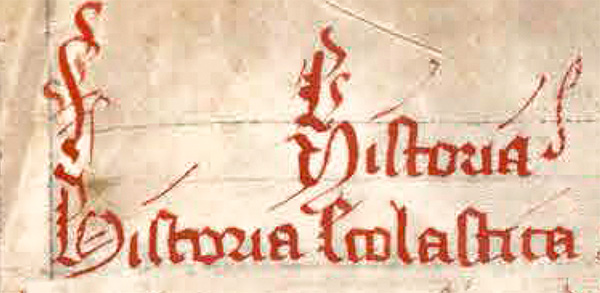 Historia
Historia scolastica